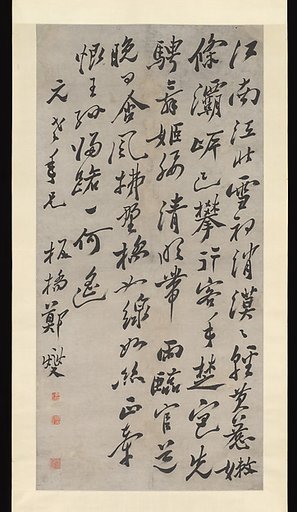 江南江北雪初消漠漠輕黃惹嫩
條灞岸已攀行客手楚宮先
騁舞姬腰清明帶雨臨官道
晚日含風拂野橋如線如絲正牽
恨王孫歸路一何遙
年兄 板橋鄭燮